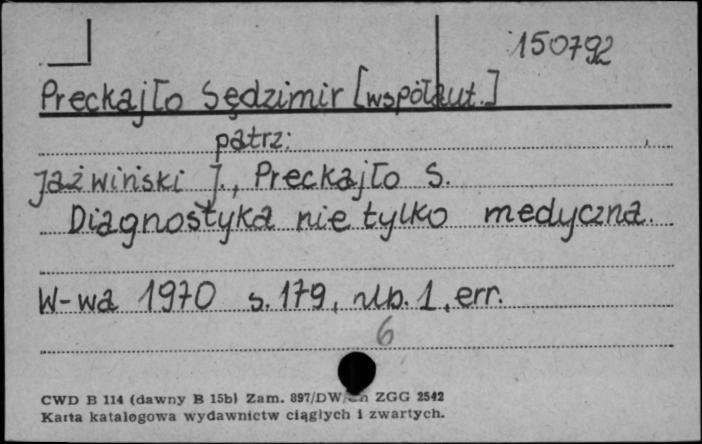 150792
Preckajło Sędzimir [współaut.]
patrz:
Jaźwiński J., Preckajło S.
Diagnostyka nie tylko medyczna.
W-wa 1970 s. 179, nlb. 1, err.
6
CWD B 114 (dawny B 15b) Zam. 897/DW ZGG 2542
Karta katalogowa wydawnictw ciągłych i zwartych.